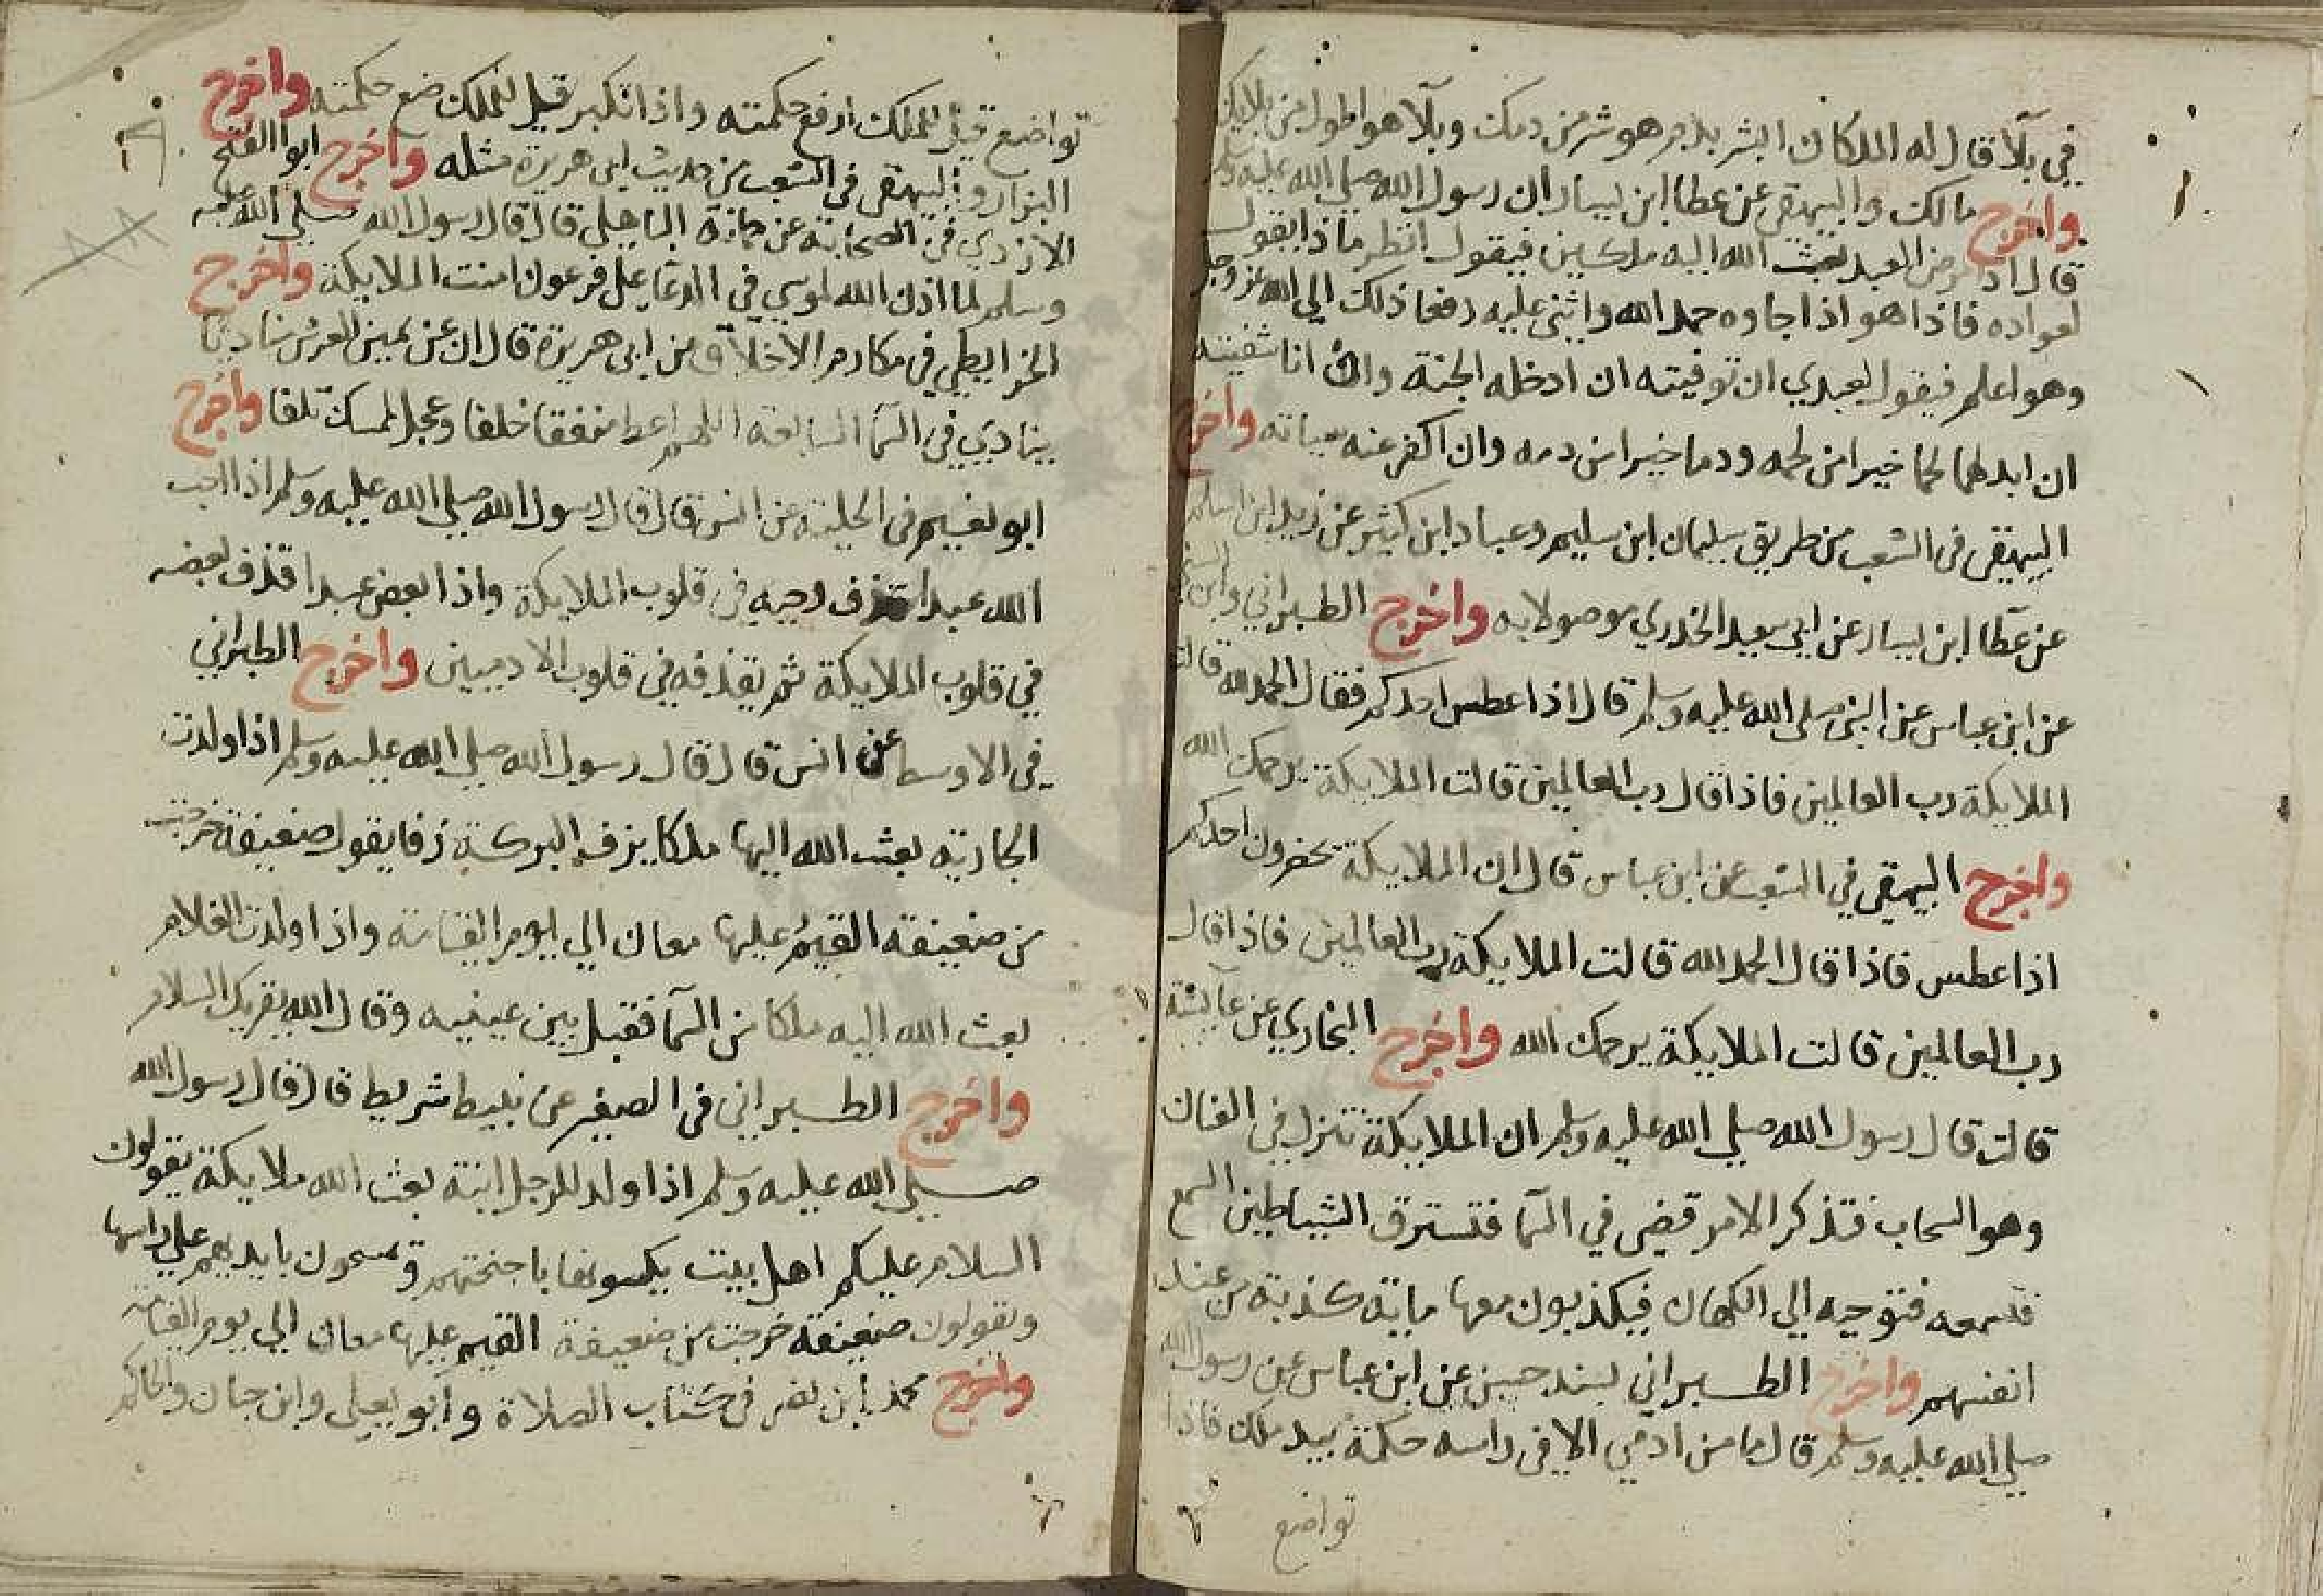 في بلآ قال له الملكان ابشر بدم هو شر من دمك وبلآ هو اطول من بلايك
واخرج مالك والبيهقي عن عطا ابن يسار ان رسول الله صلي الله عليه وسلم
قال اذا مرض العبد بعث الله اليه ملكين فيقول انظر ماذا يقول
لعواده فاذا هو اذا جاوه حمد الله واثني عليه رفعا ذلك الي الله عز وجل
وهو اعلم فيقول لعبدي ان توفيته ان ادخله الجنة وان انا شفيته
ان ابدلهما لحما خيرا من لحمه ودما خيرا من دمه وان اكفر عنه سياته واخرج
البيهقي في الشعب من طريق سليمان ابن سليم وعباد ابن كثير عن زيد ابن اسلم
عن عطا ابن يسار عن ابي سعيد الخدري موصولا به واخرج الطبراني وابن السني
عن ابن عباس عن النبي صلى الله عليه وسلم قال اذا عطس احدكم فقال الحمد لله قالت
الملايكة رب العالمين فاذا قال رب العالمين قالت الملايكة يرحمك الله
واخرج البيهقي في الشعب عن ابن عباس قال ان الملايكة تحضرون احدكم
اذا عطس فاذا قال الحمد لله قالت الملايكة رب العالمين فاذا قال
رب العالمين قالت الملايكة يرحمك الله واخرج البخاري عن عآيشة
قالت قال رسول الله صلي الله عليه وسلم ان الملايكة تنزل في العنان
وهو السحاب فتذكر الامر قضي في السمآ فتسترق الشياطين السمع
فتسمعه فتوحيه الي الكهان فيكذبون معها ماية كذبة من عند
انفسهم واخرج الطبراني بسند حسن عن ابن عباس عن رسول الله
صلي الله عليه وسلم قال ما من ادمي الا في راسه حكمة بيد ملك فاذا
تواضع
تواضع قيل للملك ارفع حكمته واذا تكبر قيل للملك ضع حكمته واخرج
البزار والبيهقي في الشعب من حديث ابي هريرة مثله واخرج ابوا الفتح
الازدي في الصحابة عن حمانة الباهلي قال قال رسول الله صلى الله عليه
وسلم لما اذن الله لموسي في الدعا على فرعون امنت الملايكة واخرج
الخرايطي في مكارم الاخلاق من ابي هريرة قال ان عن يمين العرش مناديا
ينادي في السمآ السابعة اللهم اعط منفقا خلفا وعجل لممسك تلفا واخرج
ابو نعيم في الحلية عن انس قال قال رسول الله صلي الله عليه وسلم اذا احب
الله عبدا قذف حبه في قلوب الملايكة واذا ابغض عبدا قذف بغضه
في قلوب الملايكة ثم يقذفه في قلوب الادميين واخرج الطبراني
في الاوسط عن انس قال قال رسول الله صلي الله عليه وسلم اذا ولدت
الجارية بعث الله اليها ملكا يزف البركة زفا يقول ضعيفة خرجت
من ضعيفة القيم عليها معان الي يوم القيامة واذا ولدت الغلام
بعث الله اليه ملكا من السمآ فقبل بين عينيه وقال الله يقريك السلام
واخرج الطبراني في الصغير عن نبيط شريط قال قال رسول الله
صلي الله عليه وسلم اذا ولد للرجل ابنة بعث الله ملايكة يقولون
السلام عليكم اهل بيت يكسونها باجنحتهم ويمسحون بايديهم علي راسها
ويقولون ضعيفة خرجت من ضعيفة القيم عليها معان الي يوم القيامة
واخرج محمد ابن نصر في كتاب الصلاة وابو يعلى وابن حبان والحاكم